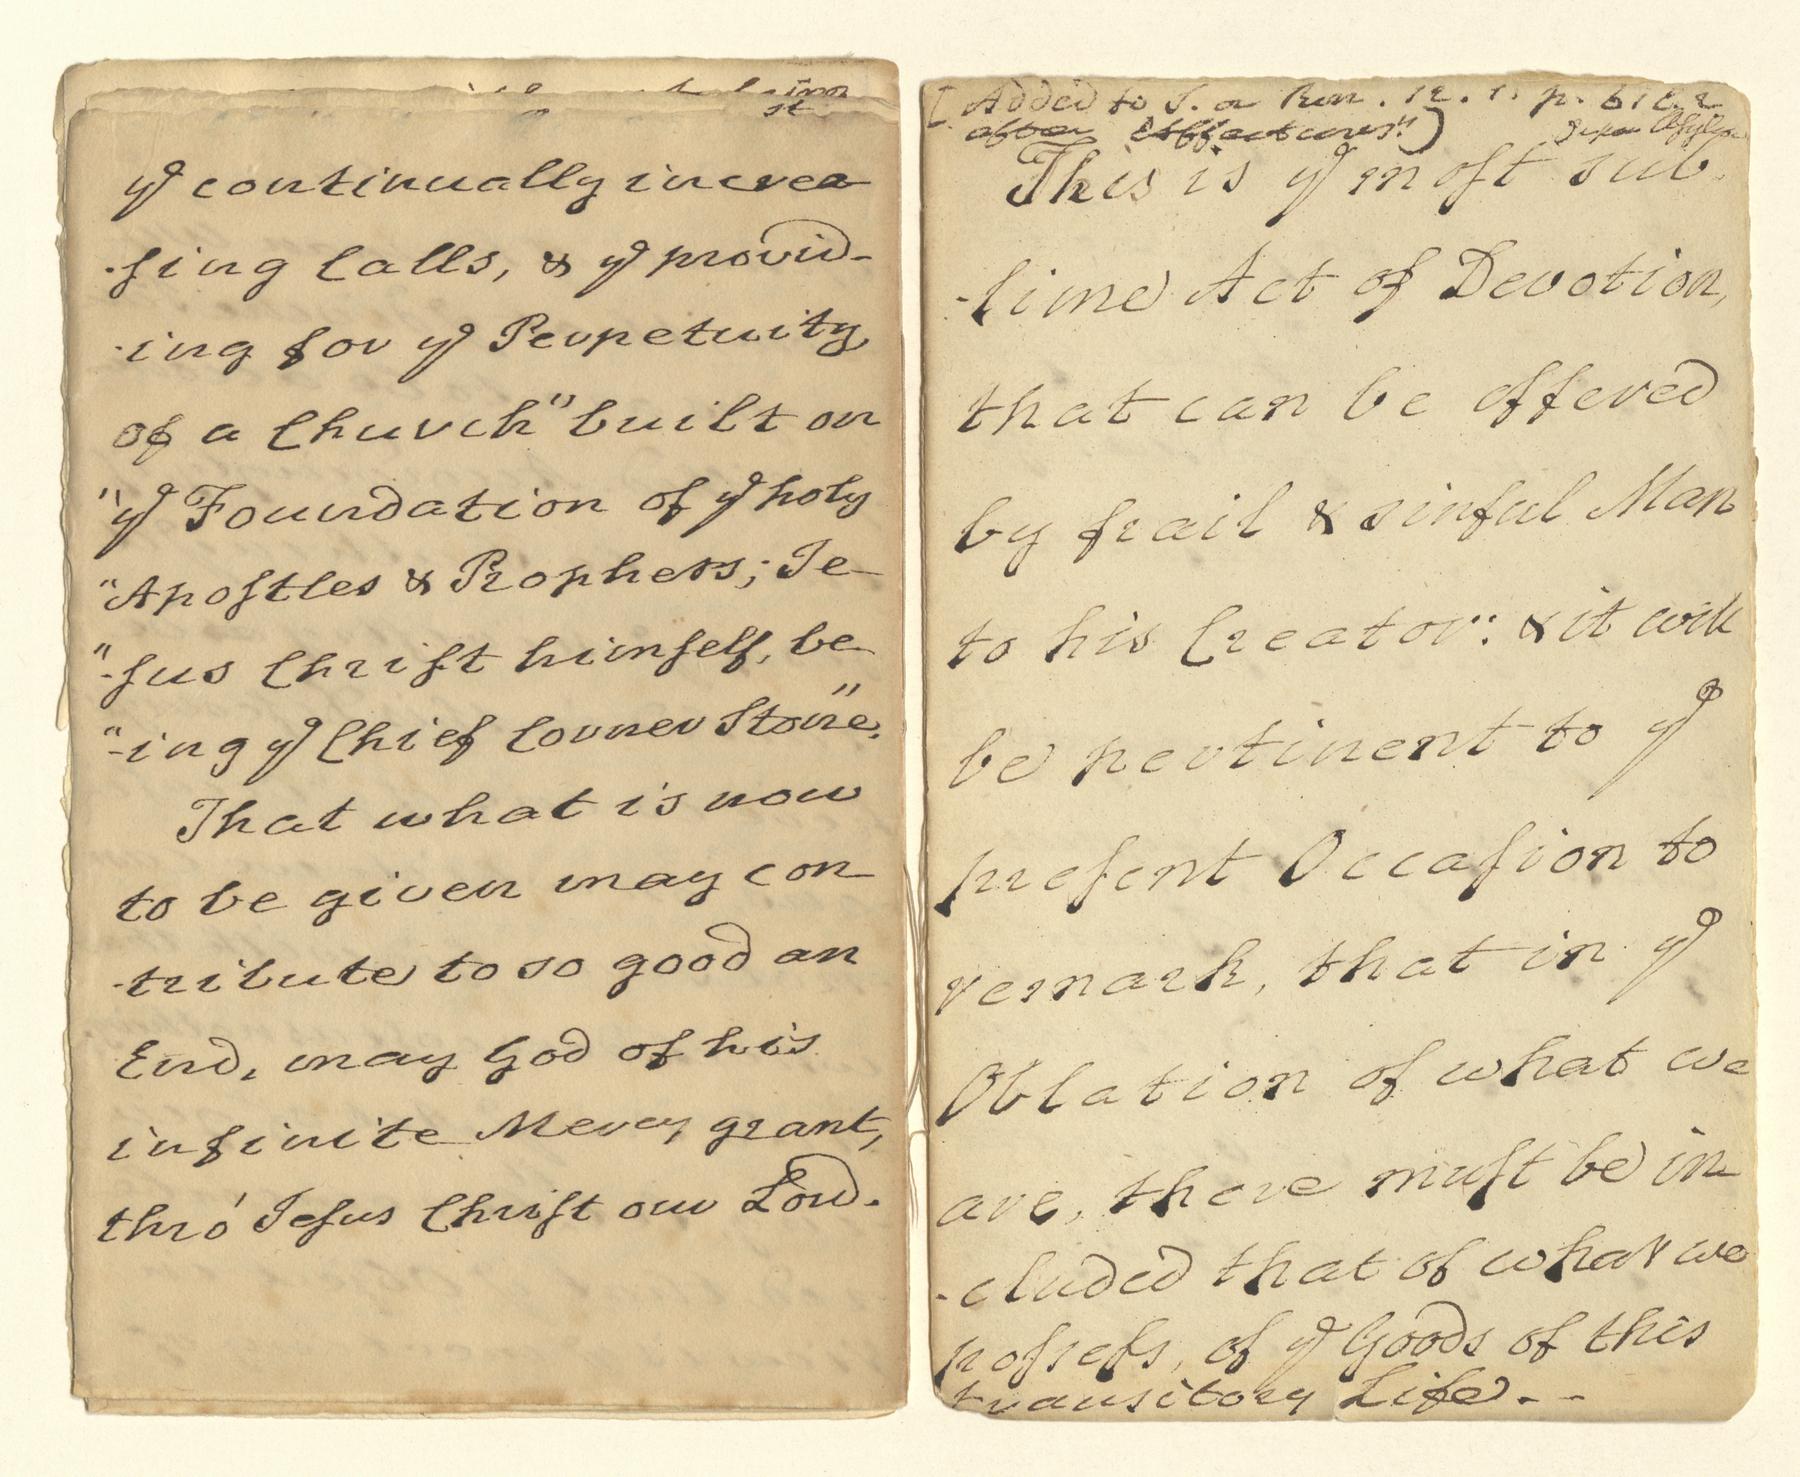 ye continually increa
-sing Calls, & ye provid-
-ing for ye Perpetuity
of a Church" built on
"ye Foundation of ye holy
"Apostles & Prophets; Je-
"-sus Christ himself, be-
"-ing ye Chief Corner Stone."
That what is now
to be given may con-
-tribute to so good an
End, may God of his
infinite Mercy grant,
thro' Jesus Christ our Lord.
[Added to S. on Rom. 12. 1. p.
This is ye most sub-
-lime Act of Devotion,
that can be offered
by frail & sinful Man
to his Creator: & it will
be pertinent to ye
present Occasion to
remark, that in ye
Oblation of what we
are, there must be in-
-cluded that of what we
possess, of ye Goods of this
transitory Life. - -